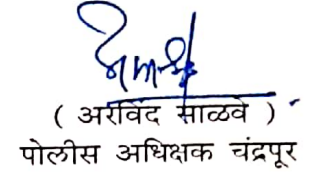 ( अरविंद साळवे )
पोलीस अधिक्षक चंद्रपूर